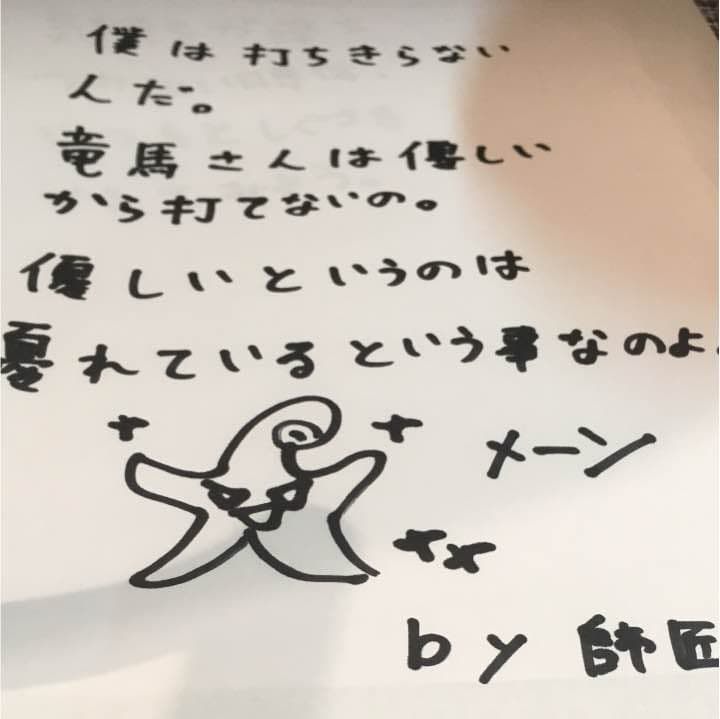 僕は打ちきらない
人だ。
竜馬さんは優しい
から打てないの。
優しいというのは
憂れているという事なのよ。
メーン
by 師匠